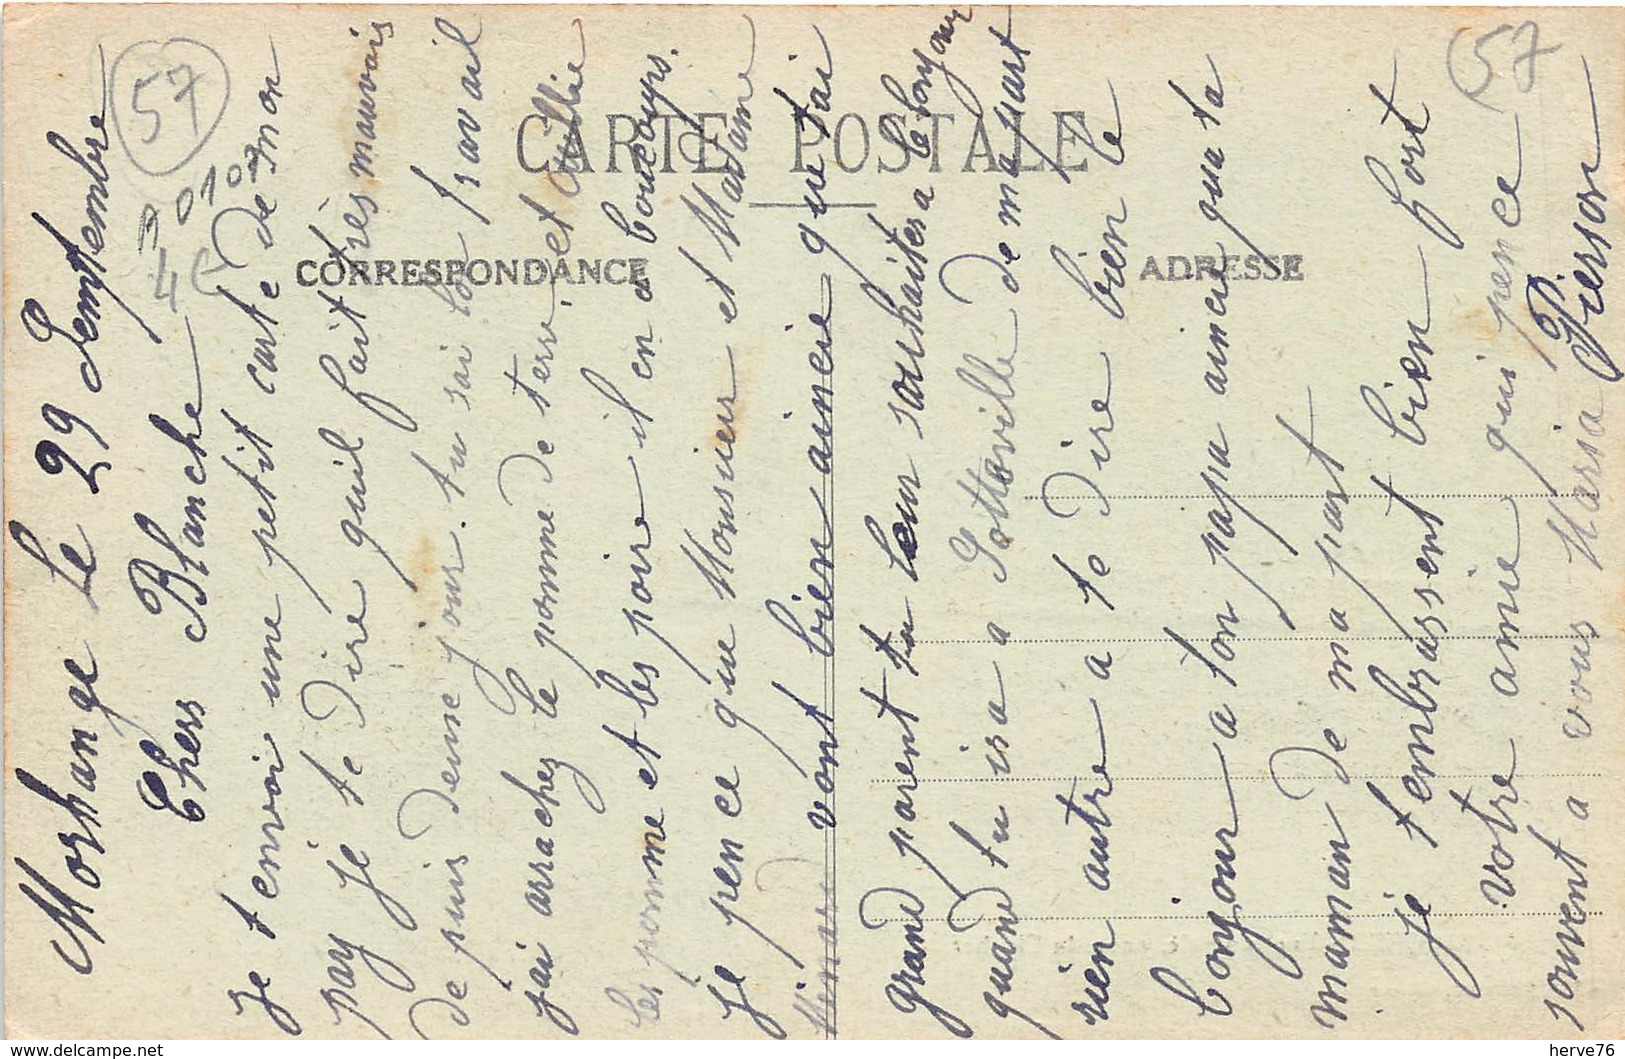 CARTE POSTALE
CORRESPONDANCE
ADRESSE
57
57
A 0107
4€
Morhange Le 29 Semptembre
Chers Blanche
je tenvoi une petit carte de mon
pay je te dire quil fait très mauvais
de puis deuse jour. tu sai le travail
jai arrachez le pomme de terre et
les pomme et les poire il en a boucoups.
je pence que Monsieur et Madame
Ménard vont bien aincie que tai
grand parent tu leur souhaitera le bonjour
quand tu ira a Sotteville de ma part
rien autre a te dire bien le
bonjour a ton papa aincie qua ta
maman de ma part
je tembrassent bien fort
votre amie qui pence
souvent a vous Maria Pierson
herve76